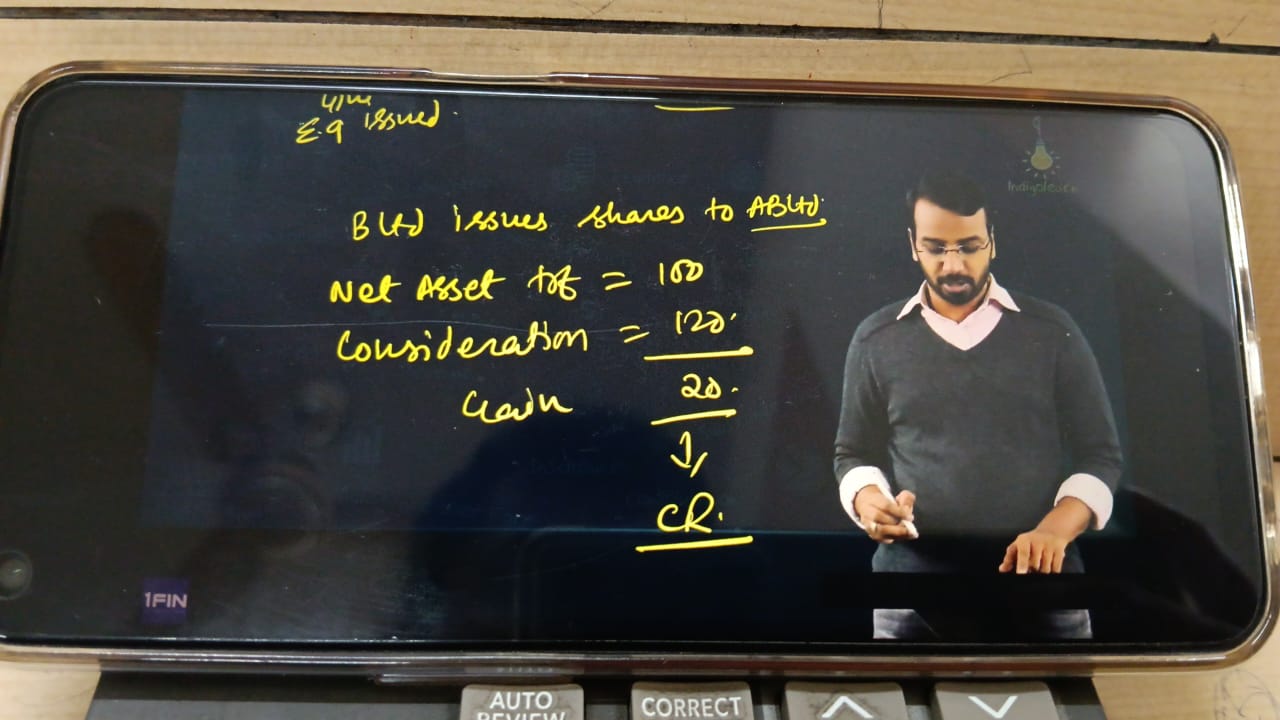 E.g issued.
B Ltd issues shares to AB Ltd.
Net Asset trf = 100
Consideration = 120.
Gain 20.
CR.
1FIN
AUTO REVIEW
CORRECT